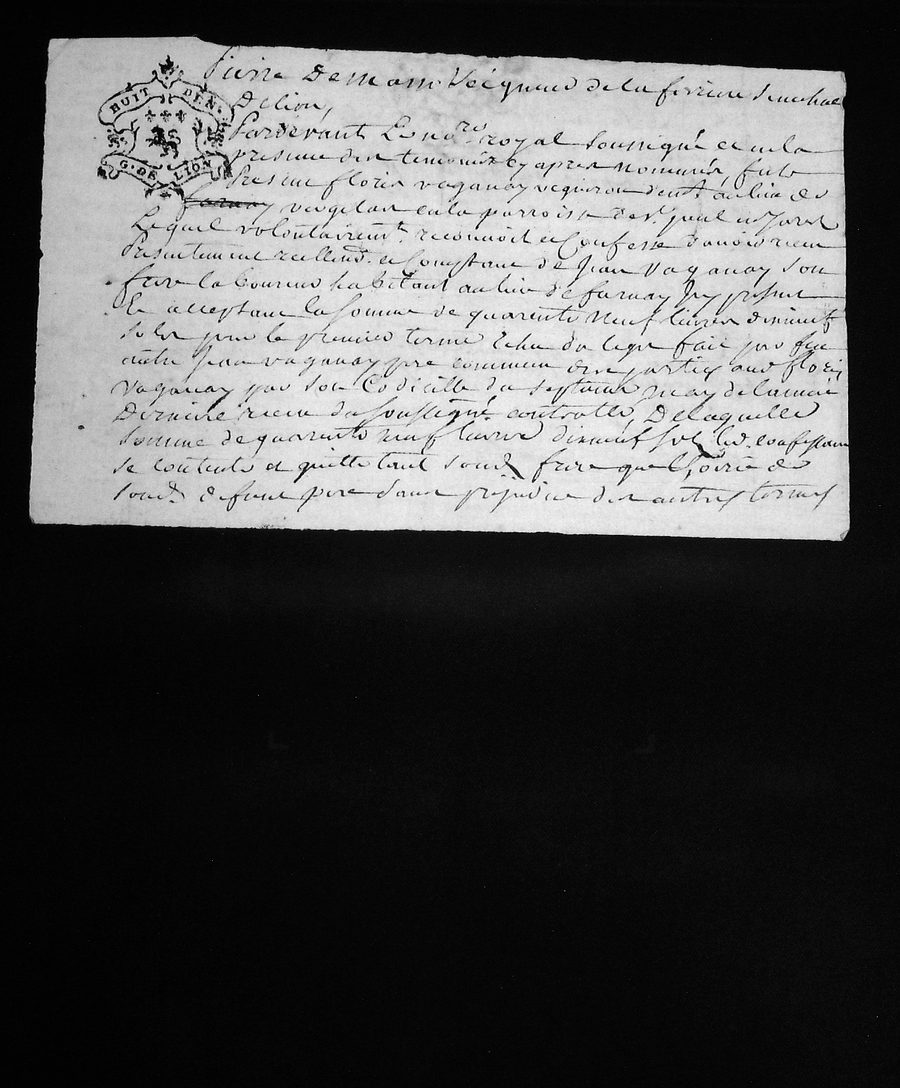 HUIT DEN.
G. DE LION
Pierre De masso Seigneur de la feriere senechal
De lion,
Pardevant Le no.re royal soussigné et en la
presence des temoins cy apres nommés, fut
Present floris vaganay vigneron dem.t au lieu de
farnay en la parroisse de s.t paul en Jarest
Lequel volontairem.t reconnoit et Confesse d'avoir receu
Presentement reellem.t et Comptant de Jean vaganay son
frere laboureur habitant au lieu de farnay Icy present
Et acceptant la somme de quarente neuf livres dixneuf
sols pour le premier terme echu du legat fait par feu
autre Jean vaganay pere commun des parties aud floris
vaganay par son Codicille du septieme may de l'année
Derniere receu du soussigné controllé, De laquelle
somme de quarente neuf livres dixneuf sols led. confessant
se contente et quitte tant sond. frere que l'hoirie de
sond. defunt pere sans prejudice des autres termes